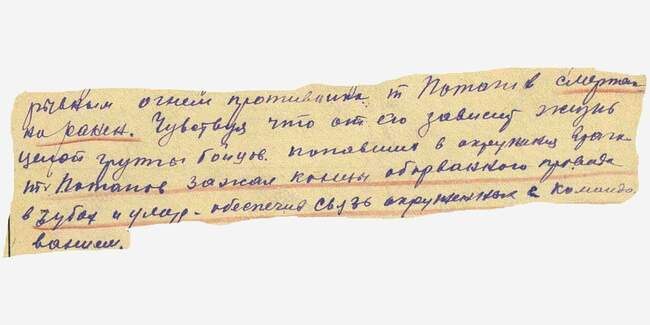 рывным огнем противника т Потапов смертель
но ранен. Чувствуя что от его зависит жизнь
целой группы бойцов попавших в окружении врага
тв Потапов зажал концы оборванного провода
в зубах и умер. обеспечив связь окруженных с командо
ванием.